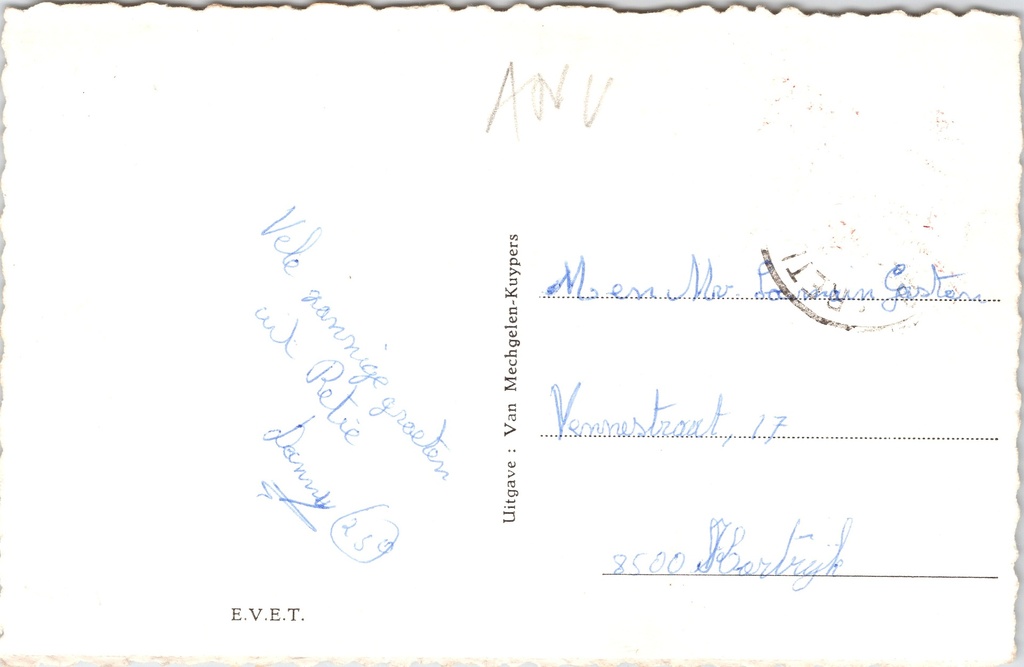 ANV
Vele zonnige groeten
uit Retie
Danny
250
E.V.E.T.
Uitgave : Van Mechgelen-Kuypers
RETI
M en Mv. Gaston
Vennestraat, 17
8500 Kortrijk